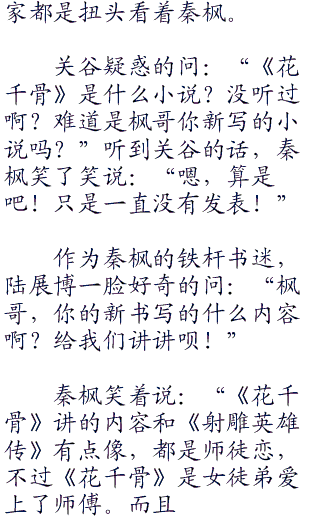 家都是扭头看着秦枫。
关谷疑惑的问：“《花
千骨》是什么小说？没听过
啊？难道是枫哥你新写的小
说吗？”听到关谷的话，秦
枫笑了笑说：“嗯，算是
吧！只是一直没有发表！”
作为秦枫的铁杆书迷，
陆展博一脸好奇的问：“枫
哥，你的新书写的什么内容
啊？给我们讲讲呗！”
秦枫笑着说：“《花千
骨》讲的内容和《射雕英雄
传》有点像，都是师徒恋，
不过《花千骨》是女徒弟爱
上了师傅。而且